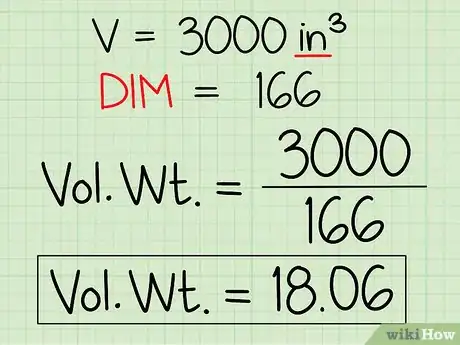 V = 3000 in³
DIM = 166
Vol. Wt. = 3000/166
Vol. Wt. = 18.06
wikiHow